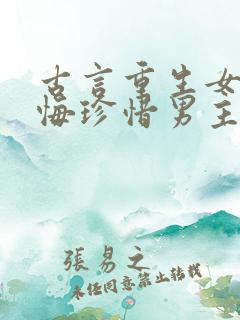 古言重生女
悔珍惜男主
張易之
未经同意禁止转载